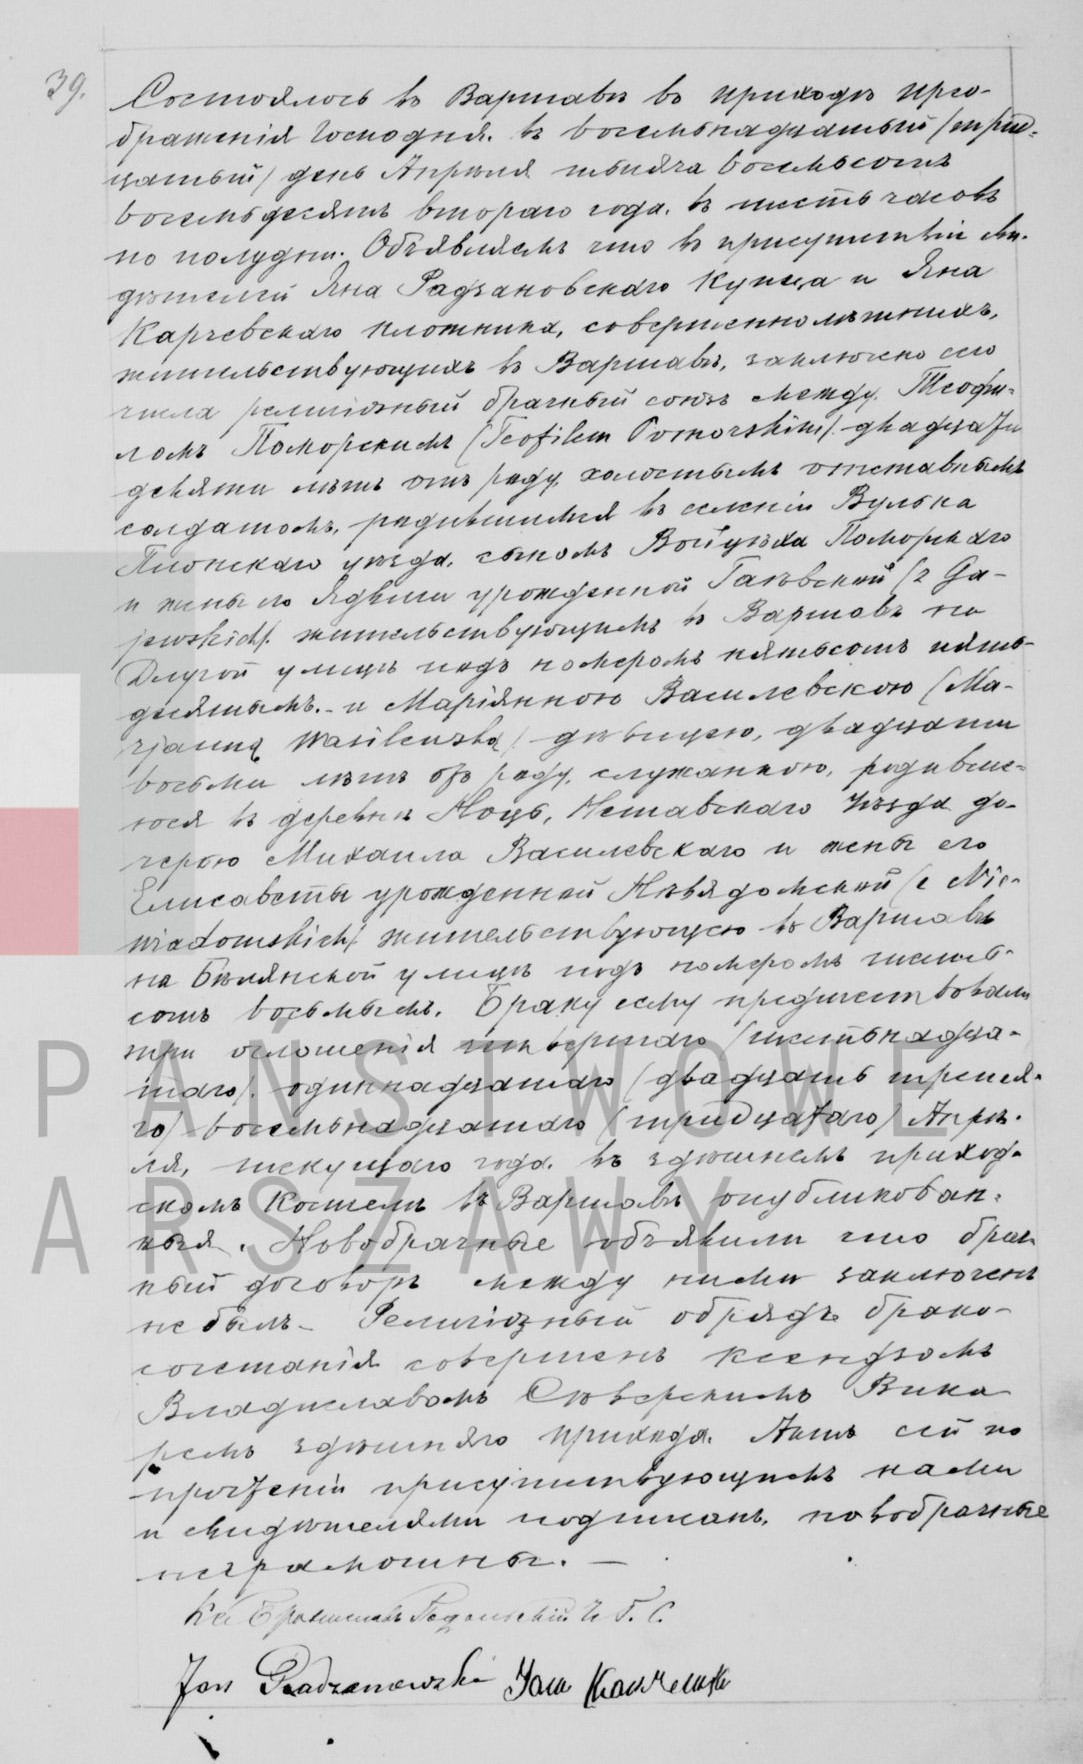 39.
Состоялось въ Варшавѣ въ приходѣ Прео-
браженія Господня. въ восемьнадцатый /трид-
цатый/ день Апрѣля тысяча восемьсотъ
восемьдесятъ втораго года. въ шесть часовъ
по полудни. Объявляемъ что въ присутствіи сви-
дѣтелей Яна Радзановскаго Купца и Яна
Карчевскаго плотника, совершеннолѣтнихъ,
жительствующихъ въ Варшавѣ, заключено сего
числа религіозный брачный союзъ между Теофи-
ломъ Поморскимъ /Teofilem Pomorskim/. двадцати
девяти лѣтъ отъ роду, холостымъ отставнымъ
солдатомъ, родившимся въ селеніи Вулька
Плонскаго уѣзда, сыномъ Войцѣха Поморскаго
и жены его Ядвиги урожденной Гаевской /z Ga-
jewskich/. жительствующимъ въ Варшавѣ на
Долгой улицѣ подъ номеромъ пятьсотъ пять-
десятымъ. - и Маріянною Василевскою /Ma-
rjanną Wasilewską/ дѣвицею, двадцати
восьми лѣтъ отъ роду, служанкою, родивше-
юся въ деревни Ноць, Нешавскаго уѣзда до-
черью Михаила Василевскаго и жены его
Елисаветы урожденной Нѣвядомской /z Nie-
wiadomskich/ жительствующую въ Варшавѣ
на Бѣлянской улицѣ подъ номеромъ шесть-
сотъ восьмымъ. Браку сему предшествовали
три оглашенія четвертаго /шестьнадца-
таго/. одиннадцатаго /двадцать третья-
го/ восемьнадцатаго /тридцатаго/ Апрѣ-
ля, текущаго года. въ здѣшнемъ приход-
скомъ Костелѣ въ Варшавѣ опубликован-
ныя. Новобрачные объявили что брач-
ный договоръ между ними заключенъ
не былъ. - Религіозный обрядъ брако-
сочетанія совершенъ ксендзомъ
Владиславомъ Сѣверскимъ Вика
ремъ здѣшняго прихода. Актъ сей по
прочтеніи присутствующимъ нами
и свидѣтелями подписанъ, новобрачные
неграмотны. —
Кс Брониславъ И. Г. С.
Jan Radzanowski Jan
PAŃSTWOWE
ARSZAWY